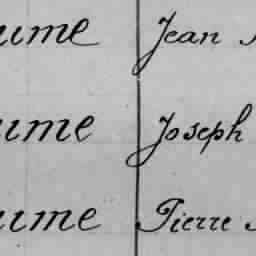 ume Jean
ume Joseph
ume Pierre